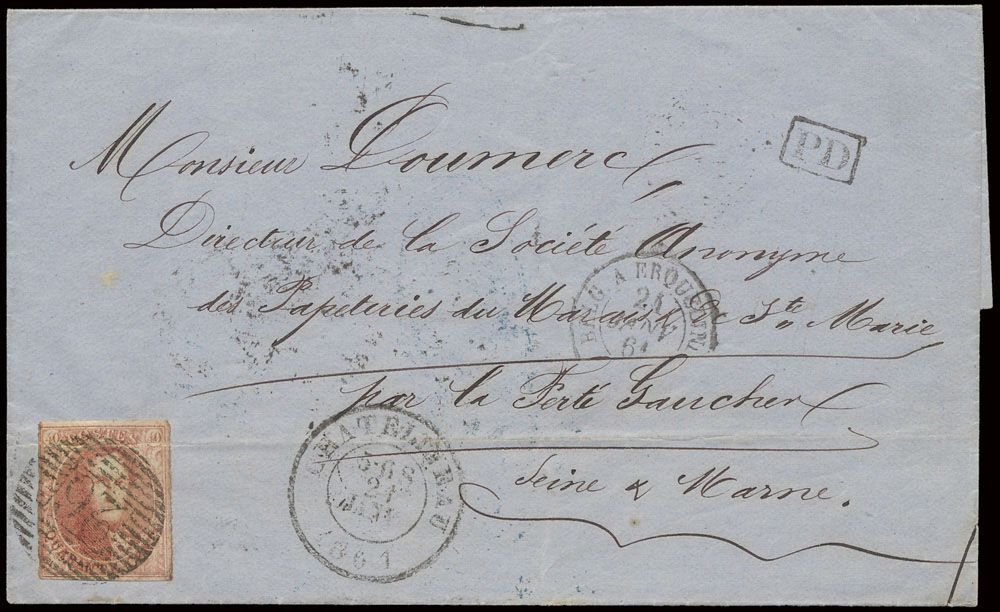 Monsieur Doumerc
PD
Directeur de la Société Anonyme
des Papeteries du Marais & Ste Marie
par la Ferté Gaucher
Seine & Marne.
BELG. A ERQUELINES
21
JANV
61
CHATELINEAU
21
JANV
1861
40
40
QUARANTE